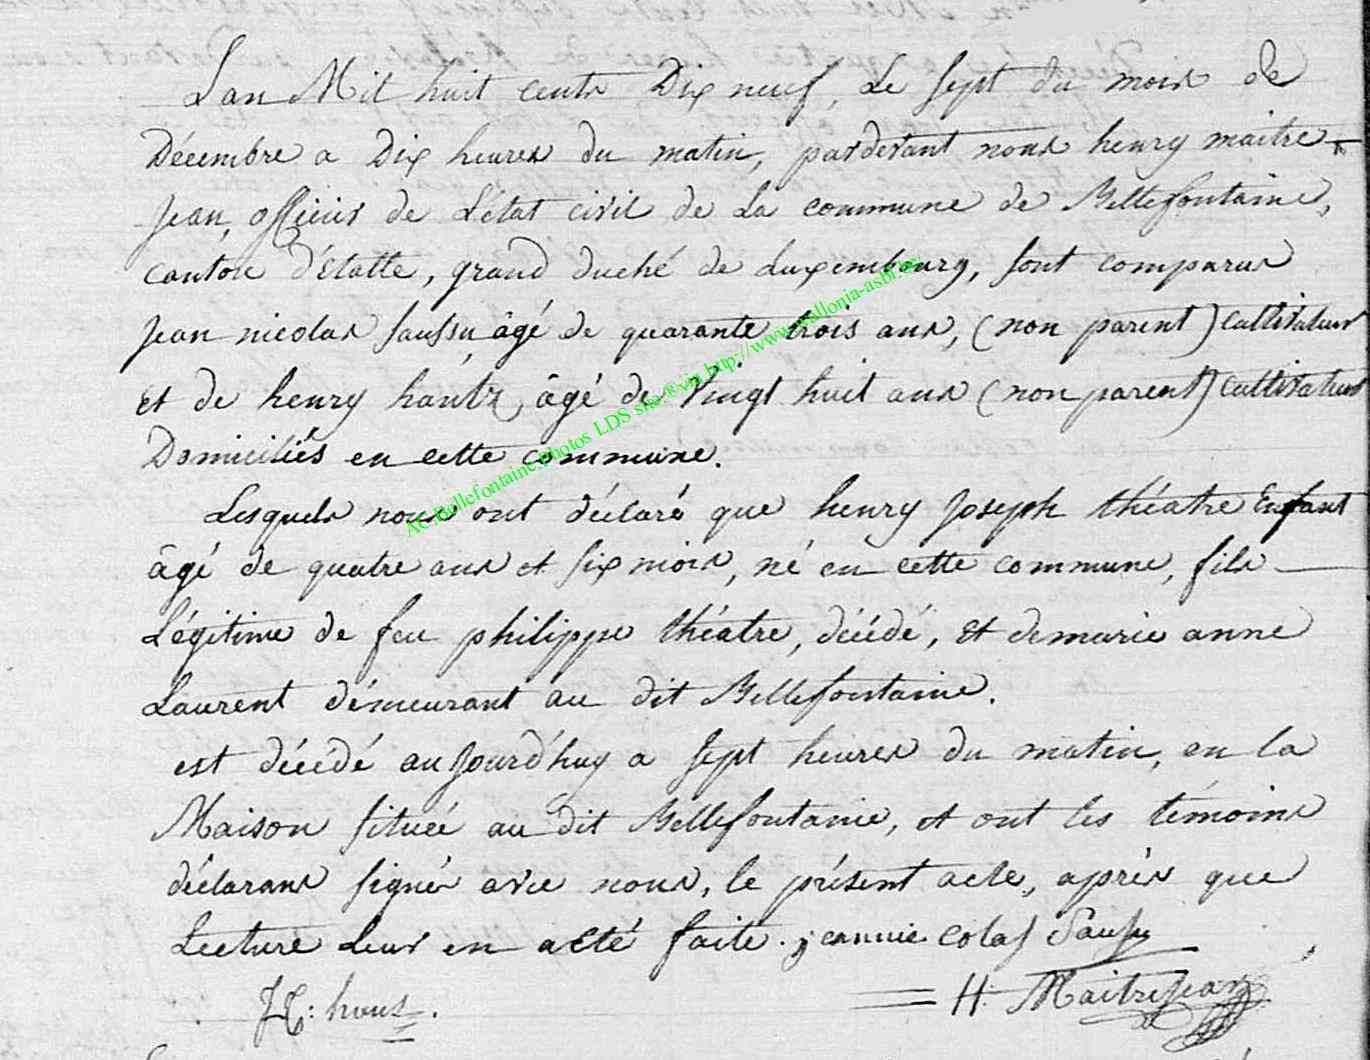 L'an Mil huit cents Dix neuf, Le sept du mois de
Décembre a Dix heures du matin, pardevant nous henry maitre
Jean, officier de L'état civil de La commune de Bellefontaine,
canton d'Etalle, grand duché de Luxembourg, sont comparus
Jean nicolas saussu, âgé de quarante trois ans, (non parent) cultivateur
et de henry hantz, âgé de vingt huit ans (non parent) cultivateur
Domiciliés en cette commune.
Lesquels nous ont déclaré que henry Joseph théatre Enfant
âgé de quatre ans et six mois, né en cette commune, fils
Légitime de feu philippe théatre, décédé, et de marie anne
Laurent démeurant au dit Bellefontaine.
est décédé aujourd'huy a sept heures du matin, en la
Maison située au dit Bellefontaine, et ont les témoins
déclarans signés avec nous, le présent acte, après que
Lecture Leur en a eté faite. jeannie colas Saussu
H. MaitreJean
AC Bellefontaine Photos LDS site via http://www.wallonia-asbl.be